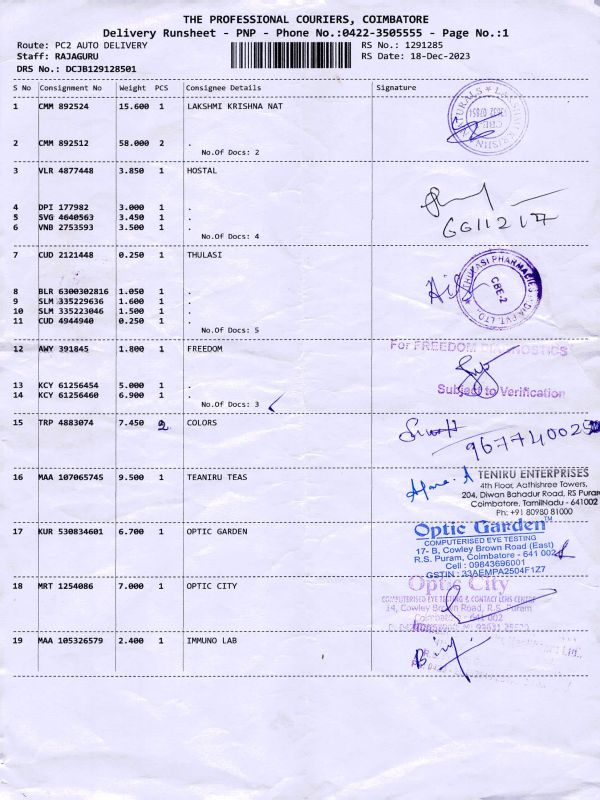 THE PROFESSIONAL COURIERS, COIMBATORE
Delivery Runsheet - PNP - Phone No.:0422-3505555 - Page No.:1
Route: PC2 AUTO DELIVERY RS No.: 1291285
Staff: RAJAGURU RS Date: 18-Dec-2023
DRS No.: DCJB129128501
S No Consignment No Weight PCS Consignee Details Signature
1 CMM 892524 15.600 1 LAKSHMI KRISHNA NAT
2 CMM 892512 58.000 2 .
No.Of Docs: 2
3 VLR 4877448 3.850 1 HOSTAL
4 DPI 177982 3.000 1 .
5 SVG 4640563 3.450 1 .
6 VNB 2753593 3.500 1 .
No.Of Docs: 4
7 CUD 2121448 0.250 1 THULASI
THULASI PHARMACIES
CBE-2
8 BLR 6300302816 1.050 1 .
9 SLM 335229636 1.600 1 .
10 SLM 335223046 1.500 1 .
11 CUD 4944940 0.250 1 .
No.Of Docs: 5
12 AWY 391845 1.800 1 FREEDOM
For FREEDOM DIAGNOSTICS
13 KCY 61256454 5.000 1 .
14 KCY 61256460 6.900 1 .
Subject to Verification
No.Of Docs: 3
15 TRP 4883074 7.450 2 COLORS
16 MAA 107065745 9.500 1 TEANIRU TEAS
TENIRU ENTERPRISES
4th Floor, Aathishree Towers,
204, Diwan Bahadur Road, RS Puram
Coimbatore, TamilNadu - 641002
Ph: +91 80980 81000
17 KUR 530834601 6.700 1 OPTIC GARDEN
Optic Garden™
COMPUTERISED EYE TESTING
17- B, Cowley Brown Road (East)
R.S. Puram, Coimbatore - 641 002
Cell : 09843696001
GSTIN : 33AEMPA2504F1Z7
18 MRT 1254086 7.000 1 OPTIC CITY
Optic City
COMPUTERISED EYE TESTING & CONTACT LENS CENTRE
14, Cowley Brown Road, R.S. Puram
Coimbatore - 641 002
19 MAA 105326579 2.400 1 IMMUNO LAB